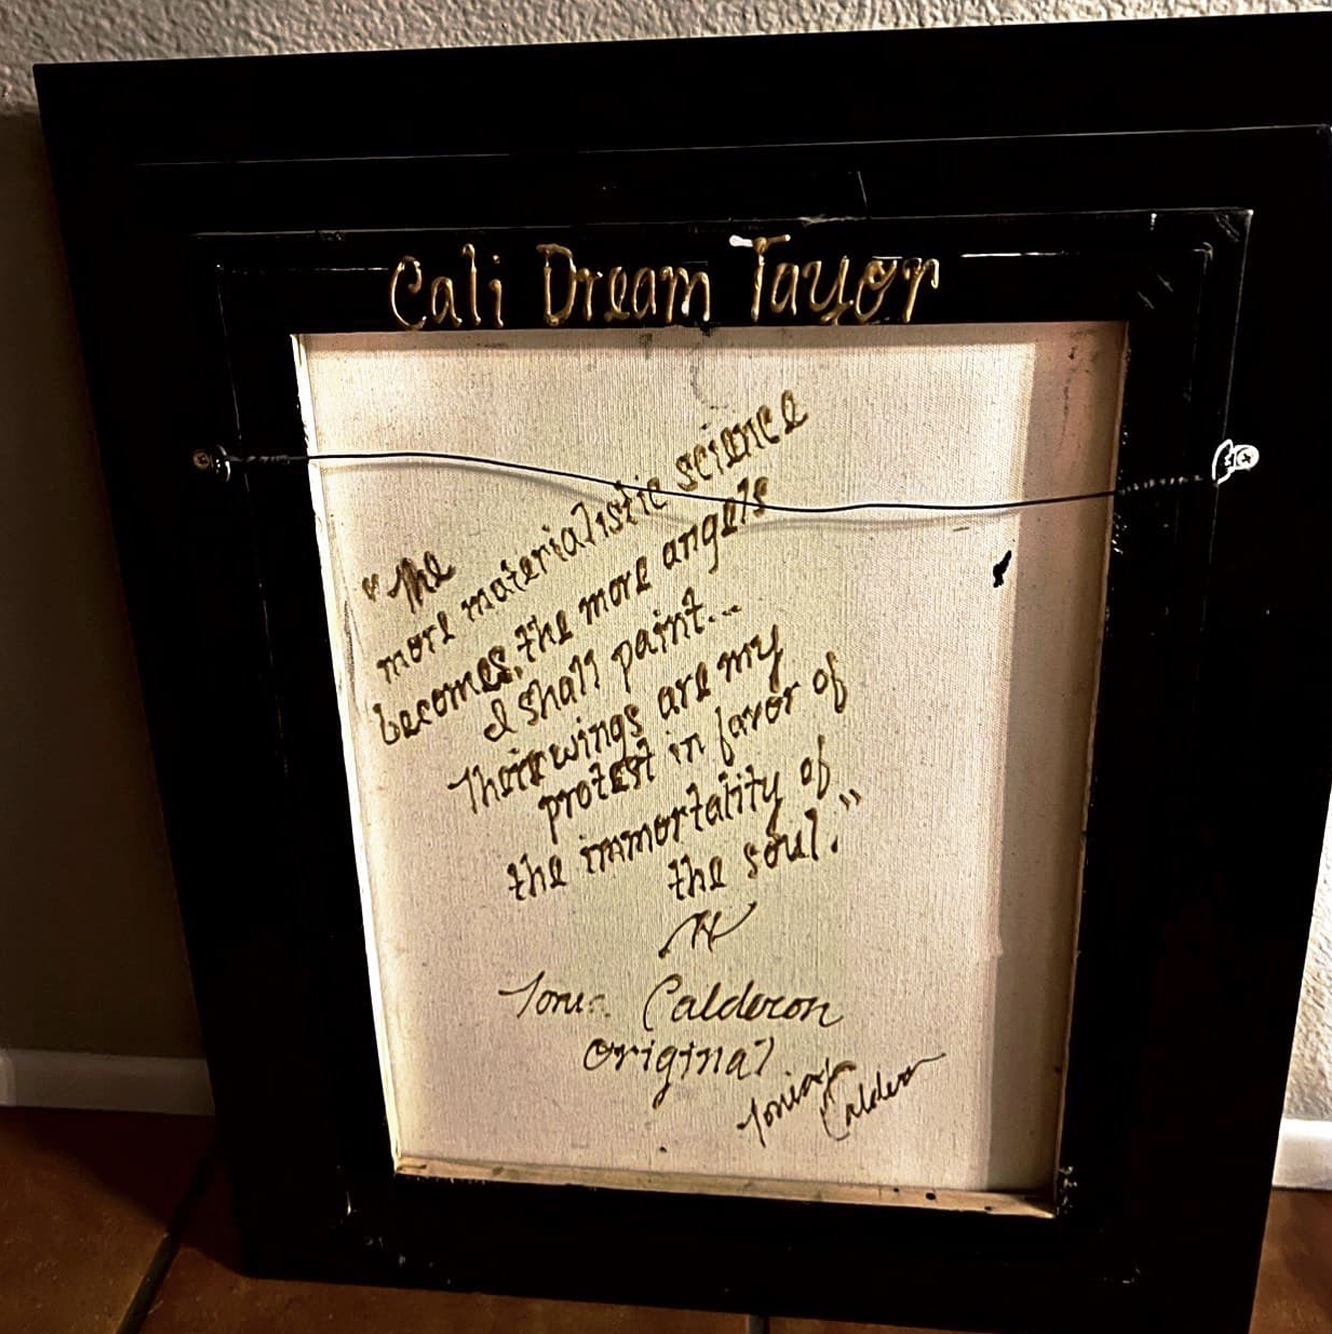 Cali Dream Tayor
"The
more materialistic science
becomes, the more angels
I shall paint...
Their wings are my
protest in favor of
the immortality of
the soul."
Calderon
Original
Calderon